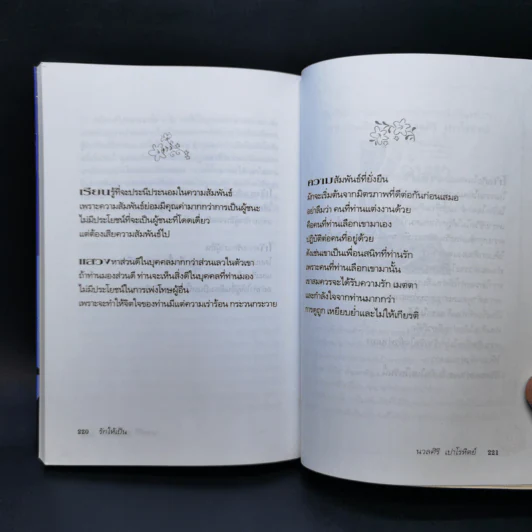 เรียนรู้ที่จะประนีประนอมในความสัมพันธ์
เพราะความสัมพันธ์ย่อมมีคุณค่ามากกว่าการเป็นผู้ชนะ
ไม่มีประโยชน์ที่จะเป็นผู้ชนะที่โดดเดี่ยว
แต่ต้องเสียความสัมพันธ์ไป
แสวงหาส่วนดีในบุคคลมากกว่าส่วนเลวในตัวเขา
ถ้าท่านมองส่วนดี ท่านจะเห็นสิ่งดีในบุคคลที่ท่านมอง
ไม่มีประโยชน์ในการเพ่งโทษผู้อื่น
เพราะจะทำให้จิตใจของท่านมีแต่ความเร่าร้อน กระวนกระวาย
220 รักให้เป็น
ความสัมพันธ์ที่ยั่งยืน
มักจะเริ่มต้นจากมิตรภาพที่ดีต่อกันก่อนเสมอ
อย่าลืมว่า คนที่ท่านแต่งงานด้วย
คือคนที่ท่านเลือกเขามาเอง
ปฏิบัติต่อคนที่อยู่ด้วย
ดังเช่นเขาเป็นเพื่อนสนิทที่ท่านรัก
เพราะคนที่ท่านเลือกเขามานั้น
เขาสมควรจะได้รับความรัก เมตตา
และกำลังใจจากท่านมากกว่า
การดูถูก เหยียบย่ำและไม่ให้เกียรติ
นวลศิริ เปาโรหิตย์ 221